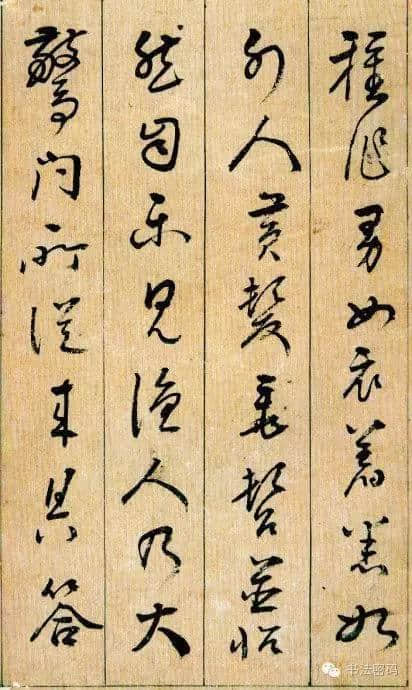 種作男女衣著悉如
外人黃髮垂髫並怡
然自樂見漁人乃大
驚問所從來具答
书法密码